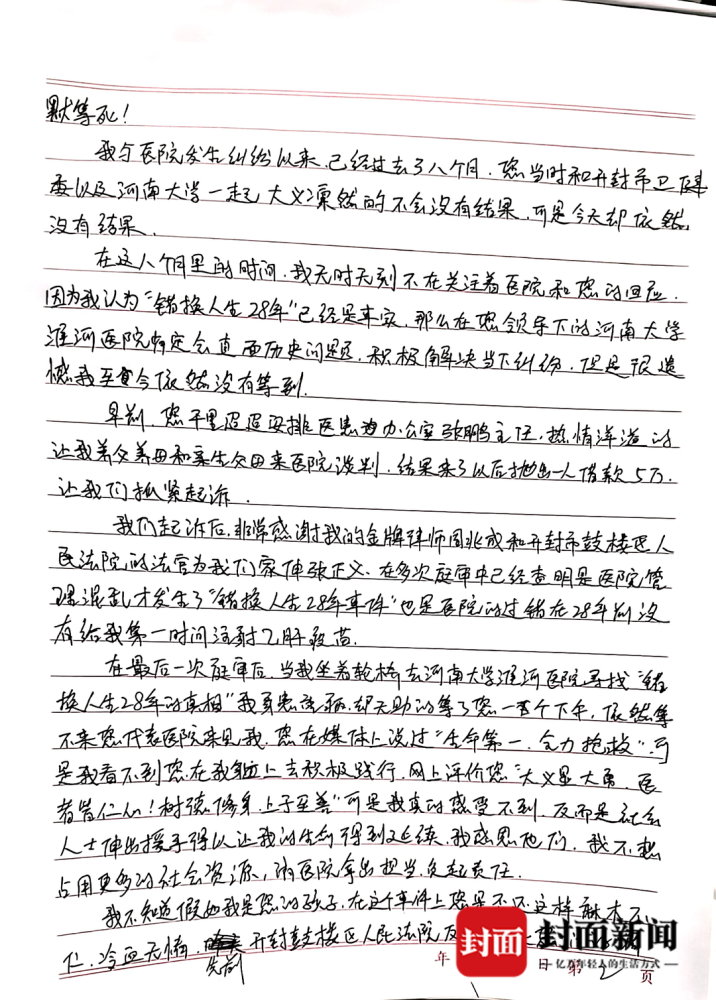 默等死！
我与医院发生纠纷以来，已经过去了八个月，您当时和开封市卫健
委以及河南大学一起大义凛然的不会没有结果，可是今天却依然
没有结果。
在这八个月里的时间，我无时无刻不在关注着医院和您的回应，
因为我认为“错换人生28年”已经是事实，那么在您领导下的河南大学
淮河医院肯定会直面历史问题，积极解决当下纠纷，但是很遗
憾我至今依然没有等到。
早前，您千里迢迢安排医患办公室张鹏主任，热情洋溢的
让我养父养母和亲生父母来医院谈判，结果来了以后抛出一人借款5万，
让我们抓紧起诉。
我们起诉后，非常感谢我的金牌律师周兆成和开封市鼓楼区人
民法院的法官为我们家伸张正义，在多次庭审中已经查明是医院管
理混乱才发生了“错换人生28年事件”也是医院的过错在28年前没
有给我第一时间注射乙肝疫苗。
在最后一次庭审后，当我坐着轮椅去河南大学淮河医院寻找“错
换人生28年的真相”我身患癌症，却无助的等了您一个下午，依然等
不来您代表医院来见我，您在媒体上说过“生命第一，全力抢救”可
是我看不到您在我身上去积极践行，网上评价您“大义显大勇，医
者皆仁心！树德修身，上于至善”可是我真的感受不到，反而是社会
人士伸出援手得以让我的生命得到延续，我感恩他们，我不想
占用更多的社会资源，请医院拿出担当，负起责任。
我不知道假如我是您的孩子，在这个事件上您是不还这样麻木不
仁，冷血无情，开封鼓楼区人民法院
先前
年 日 第 2 页
封面 封面新闻
亿万年轻人的生活方式